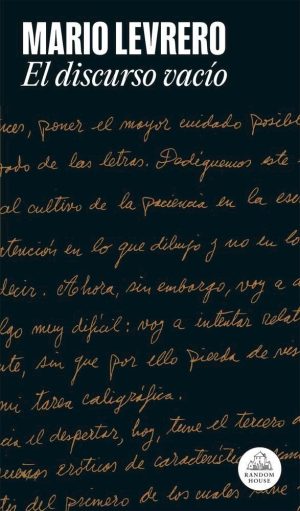 MARIO LEVRERO
El discurso vacío
nces, poner el mayor cuidado posible
zado de las letras. Dediquemos este
al cultivo de la paciencia en la escr
atención en lo que dibujo y no en lo
decir. Ahora, sin embargo, voy a a
lgo muy difícil: voy a intentar relat
nte, sin que por ello pierda de vis
mi tarea caligráfica.
cia el despertar, hoy, tuve el tercero d
sueños eróticos de característic
tes del primero de los cuales tuve
RANDOM
HOUSE